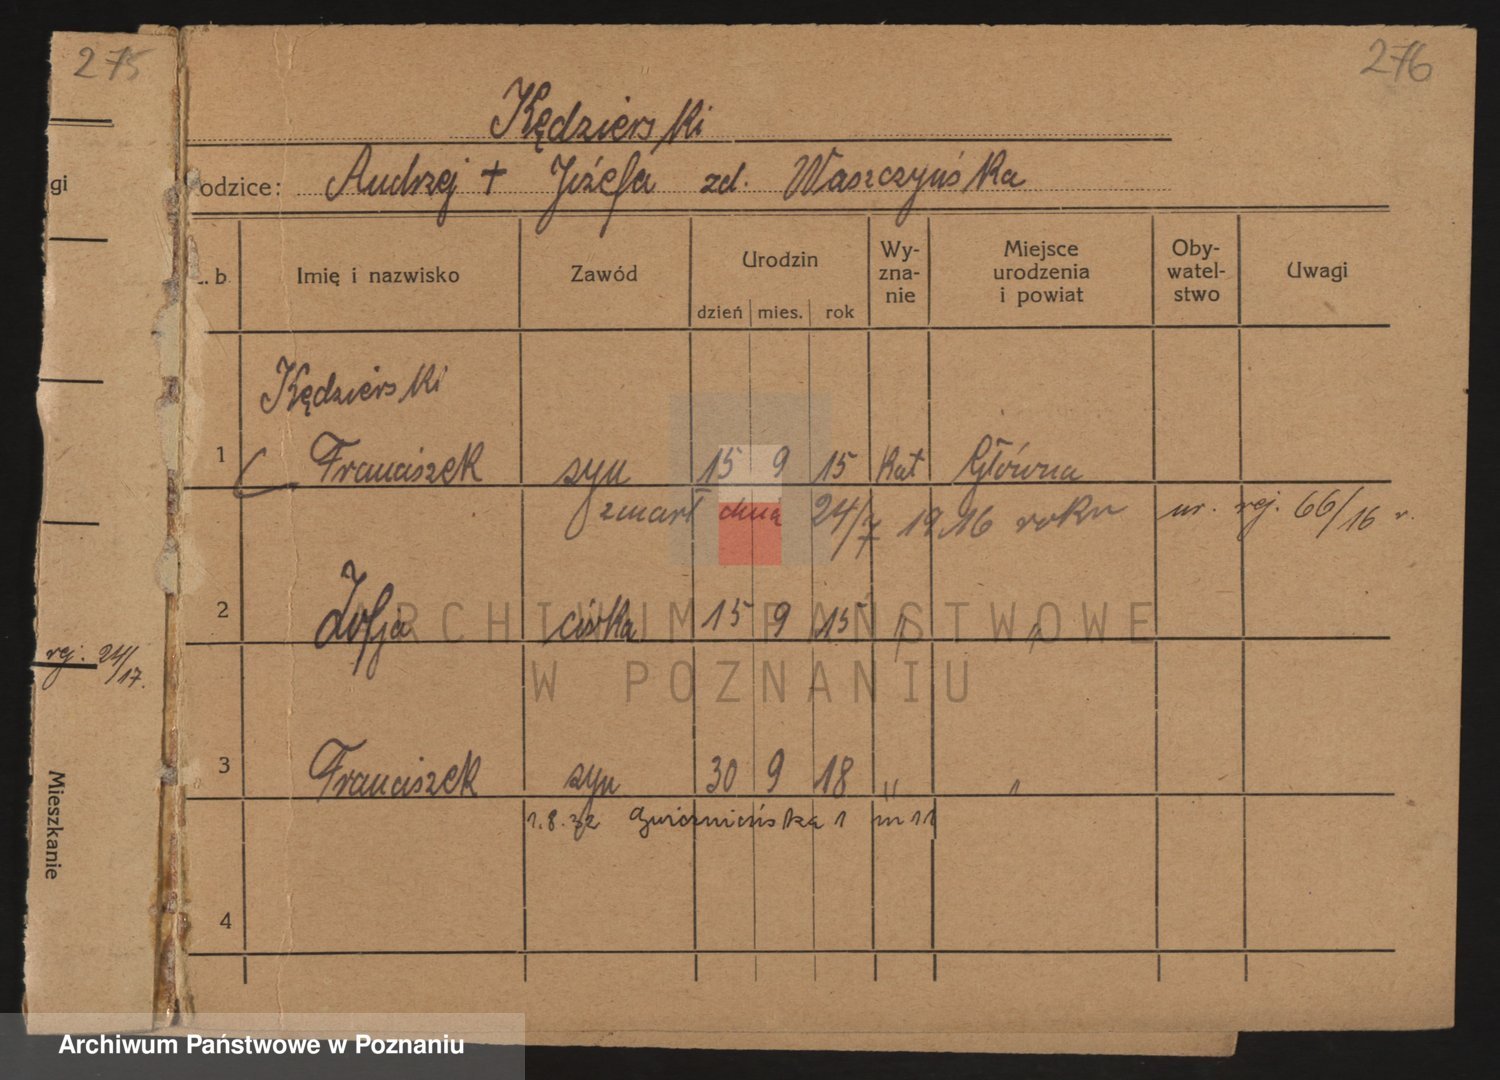 275
276
Kędzierski
odzice: Andrzej + Józefa zd. Waszczyńska
gi
. b. Imię i nazwisko Zawód Urodzin dzień mies. rok Wy-zna-nie Miejsce urodzenia i powiat Oby-watel-stwo Uwagi
Kędzierski
1 Franciszek syn 15 9 15 kat Główna
zmarł dnia 24/7 1916 roku nr. rej. 66/16 r.
2 Zofja córka 15 9 15 " "
rej. 24/17.
3 Franciszek syn 30 9 18 " "
1.8.32 Gnieźnieńska 1 m 11
4
Mieszkanie
ARCHIWUM PAŃSTWOWE
W POZNANIU
Archiwum Państwowe w Poznaniu